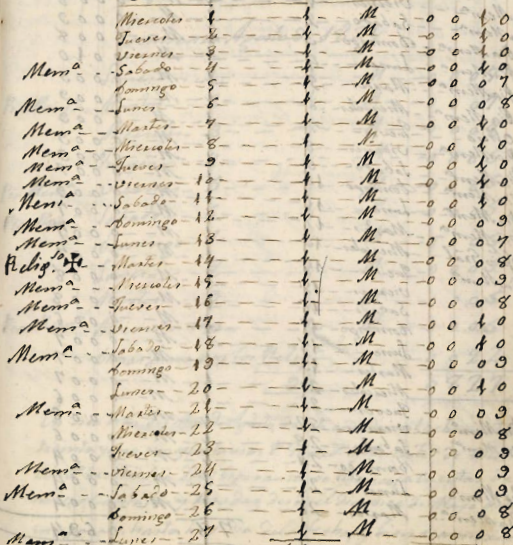 Miercoles 1 1 M 0 0 1 0
Jueves 2 1 M 0 0 1 0
Viernes 3 1 M 0 0 1 0
Mem.ª Sabado 4 1 M 0 0 1 0
Domingo 5 1 M 0 0 0 7
Mem.ª Lunes 6 1 M 0 0 0 8
Mem.ª Martes 7 1 M 0 0 1 0
Mem.ª Miercoles 8 1 M 0 0 1 0
Mem.ª Jueves 9 1 M 0 0 1 0
Mem.ª Viernes 10 1 M 0 0 1 0
Mem.ª Sabado 11 1 M 0 0 1 0
Mem.ª Domingo 12 1 M 0 0 0 9
Mem.ª Lunes 13 1 M 0 0 0 7
Relig.so ✠ Martes 14 1 M 0 0 0 8
Mem.ª Miercoles 15 1 M 0 0 0 9
Mem.ª Jueves 16 1 M 0 0 0 8
Mem.ª Viernes 17 1 M 0 0 1 0
Mem.ª Sabado 18 1 M 0 0 1 0
Domingo 19 1 M 0 0 0 9
Lunes 20 1 M 0 0 1 0
Mem.ª Martes 21 1 M 0 0 0 9
Miercoles 22 1 M 0 0 0 8
Jueves 23 1 M 0 0 0 9
Mem.ª Viernes 24 1 M 0 0 0 9
Mem.ª Sabado 25 1 M 0 0 0 9
Domingo 26 1 M 0 0 0 8
Mem.ª Lunes 27 1 M 0 0 0 8